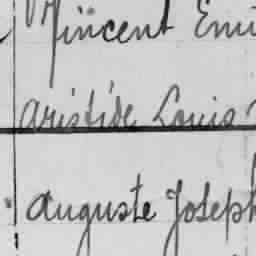 Vincent Emi
Aristide Louis
Auguste Joseph